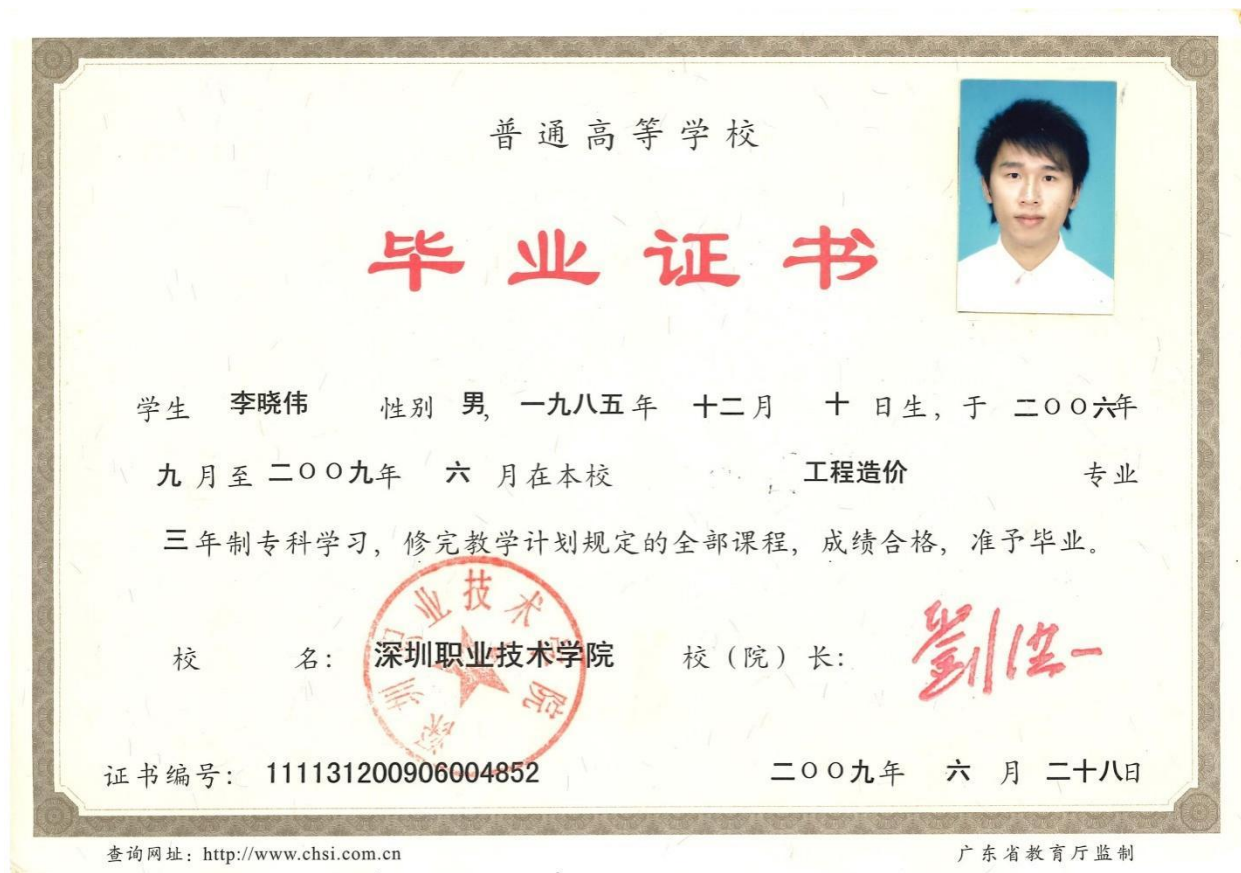 普通高等学校
毕业证书
学生 李晓伟 性别 男, 一九八五年 十二月 十 日生, 于 二○○六年
九 月至 二○○九年 六 月在本校 工程造价 专业
三年制专科学习, 修完教学计划规定的全部课程, 成绩合格, 准予毕业。
深圳职业技术学院
校 名: 深圳职业技术学院 校(院)长: 劉洪一
证书编号: 111131200906004852 二○○九年 六 月 二十八日
查询网址: http://www.chsi.com.cn 广东省教育厅监制